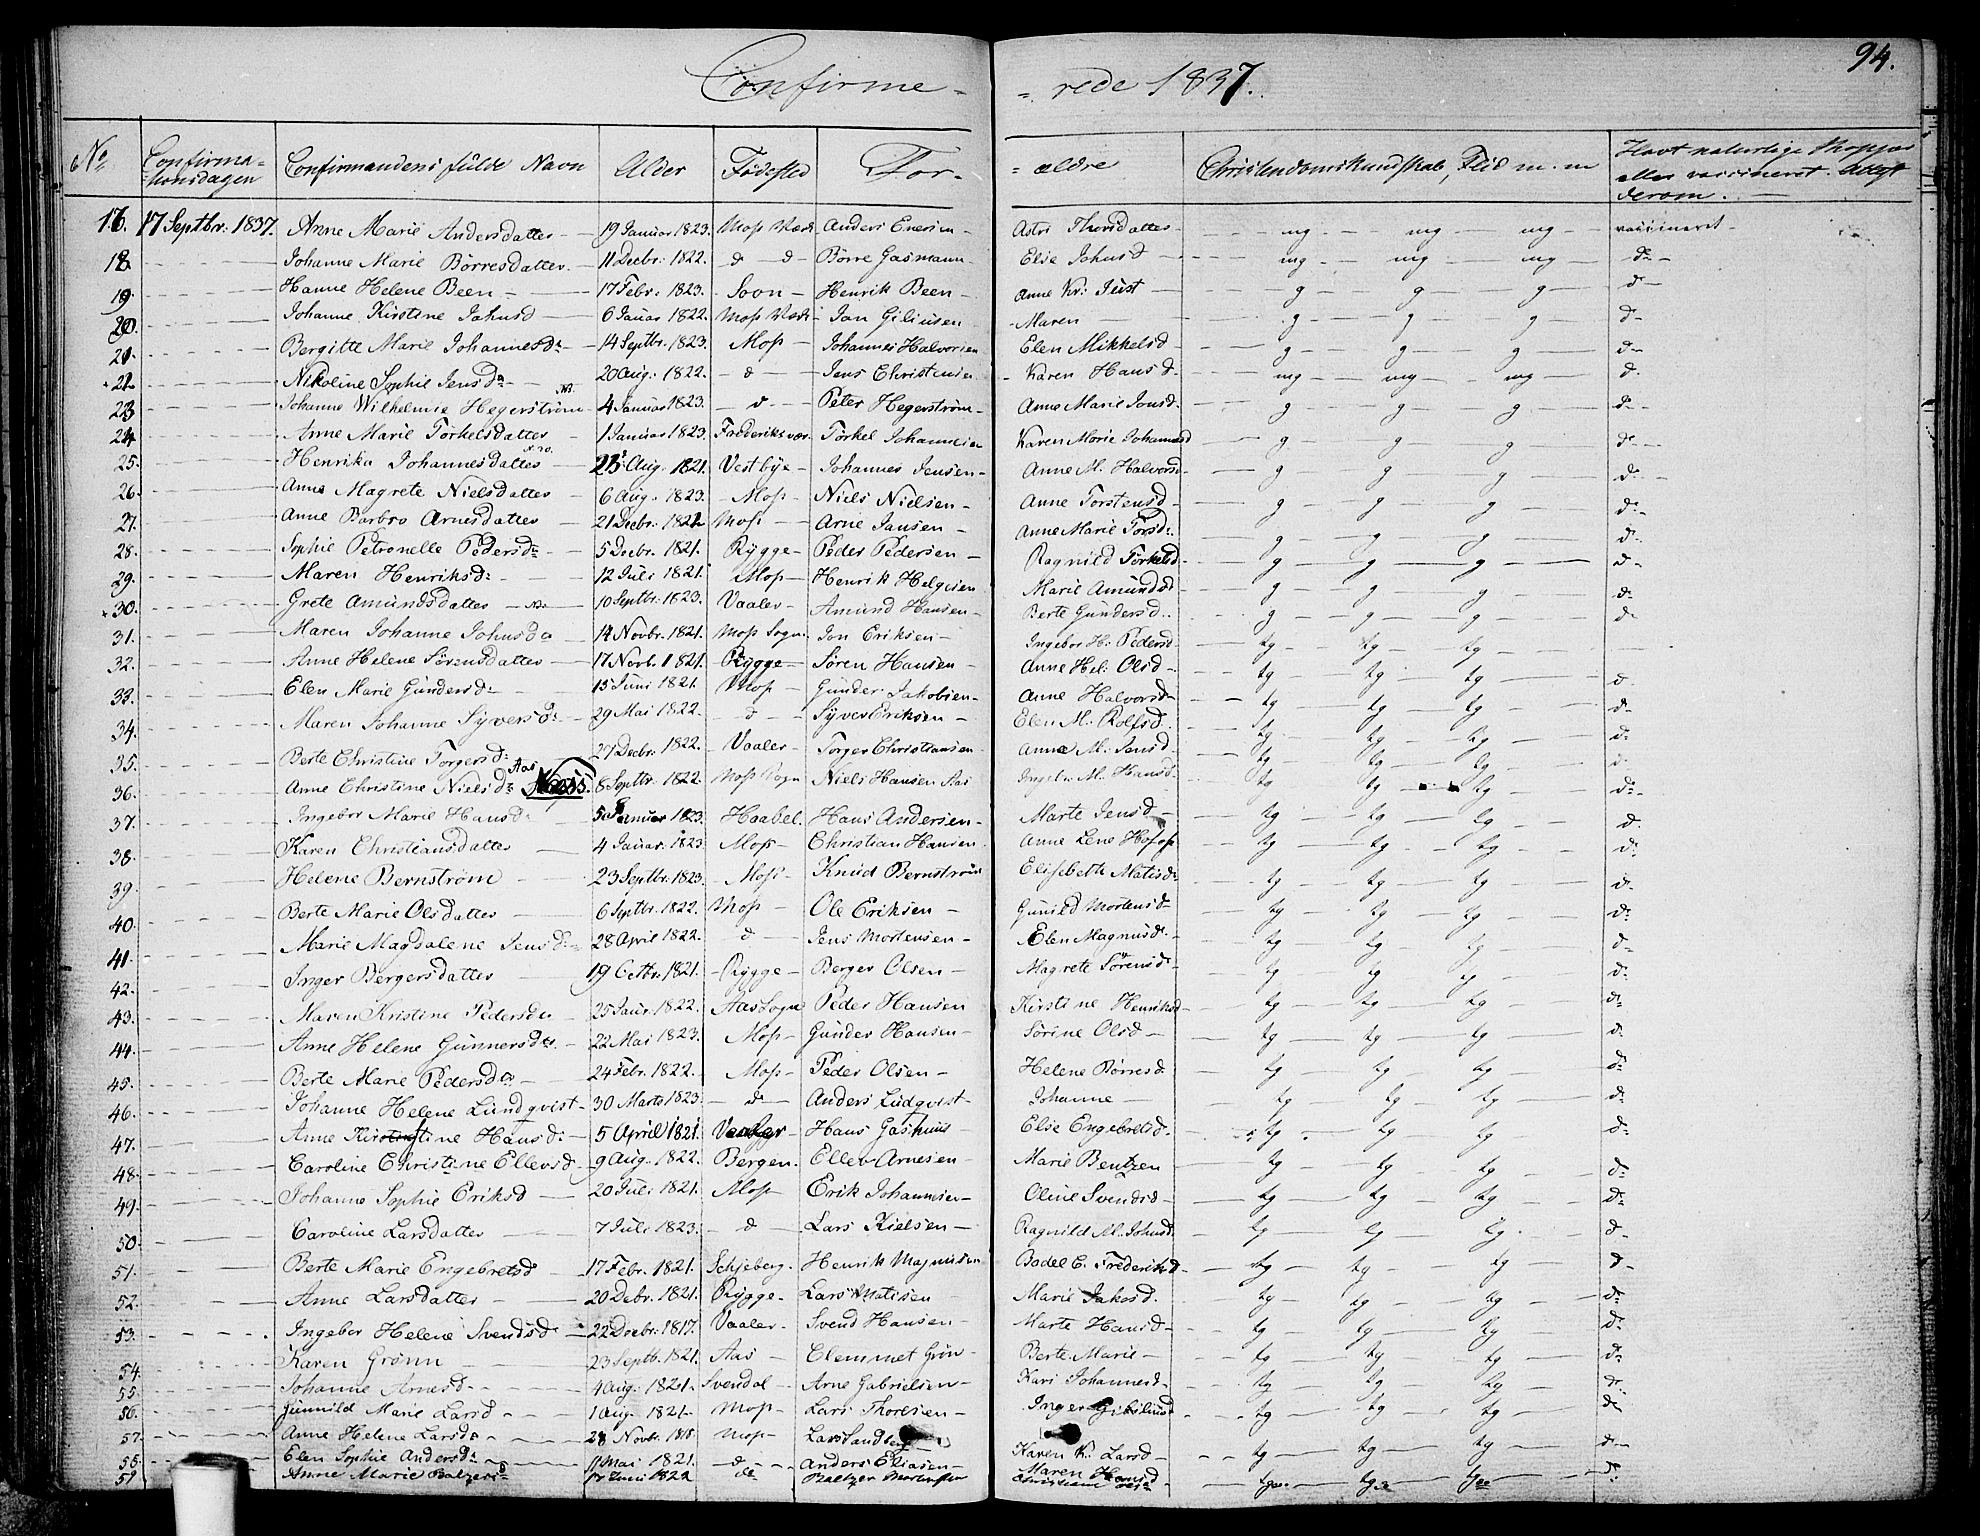 Confirme- -rede 1837. 94.
No Confirma-tionsdagen Confirmandens fulde Navn Alder Födested For- -ældre Christendomskundskab, Flid m:m Havt naturlige Kopper eller vaccineret. Attest derom.
16. 17 Septbr: 1837. Anne Marie Andersdatter 19 Januar 1823. Moss Anders Astri mg mg mg vaccineret
18. Johanne Marie Börresdatter 11 Decbr: 1822. d d Börre Gasmann Else Johnsd mg mg mg d
19. Hanne Helene Been 17 Febr: 1823. Soon Henrik Been Anne Kr: Just g g g d
20. Johanne Kirstine Johnsd 6 Januar 1822. Moss Jon Maren g g g d
21. Bergitte Marie Johannesd: 14 Septbr: 1823. Moss Johannes Halvorsen Elen Mikkelsd g g g d
22. Nikoline Sophie Jensd 20 Aug: 1822. d Jens Christensen Karen Hansd mg mg mg d
23. Johanne Wilhelmie Hegerström 4 Januar 1823. d Peter Hegerström Anne Marie Jonsd. g g g d
24. Anne Marie Torkelsdatter 1 Januar 1823. Torkel Johannesen Karen Marie Johannesd g g g d
25. Henrika Johannesdatter Aug: 1821. Vestbye Johannes Jensen Anne M. Halvorsd g g g d
26. Anne Magrete Nielsdatter 6 Aug: 1823. Moss Niels Nielsen Anne Torstensd g g g d
27. Anne Barbro Arnesdatter 21 Decbr: 1822 Moss Arne Jansen Anne Marie Torsd: g g g d
28. Sophie Petronelle Pedersd: 5 Decbr. 1821. Rygge Peder Pedersen Ragnild Torkelsd. g g g d
29. Maren Henriksd: 12 Juli 1821. Moss Henrik Helgesen Marie Amundsd g g g d
30. Grete Amundsdatter 10 Septbr: 1823. Vaaler Amund Hansen Berte Gundersd. g g g d
31. Maren Johanne Johnsd 14 Novbr. 1821. Moss Sogn Jon Eriksen Ingebor H: Pedersd tg tg tg
32. Anne Helene Sörensdatter 17 Novb. 1821. Rygge Sören Hansen Anne Hel: Olsd tg tg tg d
33. Elen Marie Gundersd: 15 Juni 1821. Moss Gunder Jakobsen Anne Halvorsd tg tg tg d
34. Maren Johanne Syversd: 29 Mai 1822. d Syver Eriksen Elen M. Rolfsd. tg tg tg d
35. Berte Christine Torgersd: 27 Decbr. 1822. Vaaler Torger Christiansen Anne M. Jensd. tg tg tg d
36. Anne Christine Nielsd: Aas 8 Septbr. 1822. Moss Sogn Niels Hansen Aas Ingebor M. Hansd tg tg tg d
37. Ingebor Marie Hansd: 5 Januar 1823. Haabel Hans Andersen Marte Jensd tg tg tg d.
38. Karen Christiansdatter 4 Januar: 1823 Moss Christian Hansen Anne Lene tg tg tg d
39. Helene Bernström 23 Septbr. 1823. Moss Knud Bernström Elisabeth Matisd: tg tg tg d
40. Berte Marie Olsdatter 6 Septbr. 1822. Moss Ole Eriksen Gunild Mortensd tg tg tg d
41. Marie Magdalene Jensd: 28 April 1822. d Jens Mortensen Elen Magnusd. tg tg tg d
42. Inger Bergersdatter 19 Octbr. 1821. Rygge Berger Olsen Magrete Sörensd. tg tg tg d
43. Maren Kristine Pedersd 25 Januar. 1822. Aas Sogn Peder Hansen Kirstine Henriksd tg tg tg d
44. Anne Helene Gunnersd 22 Mai 1823. Moss Gunder Hansen Sörine Olsd tg tg tg d
45. Berte Marie Pedersd 24 Febr. 1822. Moss Peder Olsen Helene Börresd. tg tg tg d
46. Johanne Helene Lundqvist 30 Marts 1823. d Anders Ludqvist Johanne tg tg tg d
47. Anne Kirstine Hansd: 5 April 1821. Vaaler Hans Else Engebretsd. tg tg tg d
48. Caroline Christine Ellevsd 9 Aug. 1822. Bergen. Ellev Arnesen Marie Bentzen tg tg tg d
49. Johanne Sophie Eriksd 20 Juli 1821. Moss Erik Johannesen Oline Svendsd tg tg tg d
50. Caroline Larsdatter 7 Juli 1823. d Lars Kielsen Ragnild M. Johnsd tg tg tg d
51. Berte Marie Engebretsd 17 Febr. 1821. Schjeberg. Henrik Magnusen Bodel E. Frederiksd tg tg tg d
52. Anne Larsdatter 20 Debr. 1821. Rygge Lars Matisen Marie Jakosd. tg tg tg d
53. Ingebor Helene Svendsd: 22 Decbr. 1817. Vaaler Svend Hansen Marte Hansd tg tg tg d
54. Karen Grönn 23 Septb. 1821. Aas Clemmet Grön Berte Marie tg tg tg d
55. Johanne Arnesd 4 Aug. 1821. Svendal Arne Gabrielsen Kari Johannesd. tg tg tg d
56. Gunnild Marie Larsd 1 Aug. 1821. Moss Lars Thoresen Inger tg tg tg d
57. Anne Helene Larsd 28 Novbr. 1818. Moss Lars Sandberg
58. Elen Sophie Andersd: 11 Mai 1821. d Anders Eliasen Karen K. Larsd tg tg tg d
59 Anne Marie Baltzersd Juni 1822 do Baltzer Mortensen Maren Hansd tg tg tg d